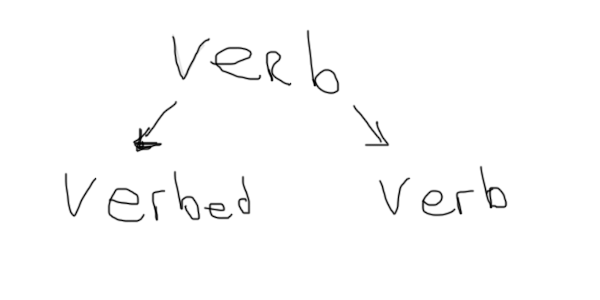 verb
verbed verb